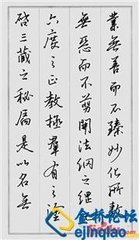 業無善而不臻妙化所敷
無惡而不翦開法網之綱
六度之正教拯羣有之塗
啟三藏之秘扃是以名無
金桥论坛
ejinqiao.com